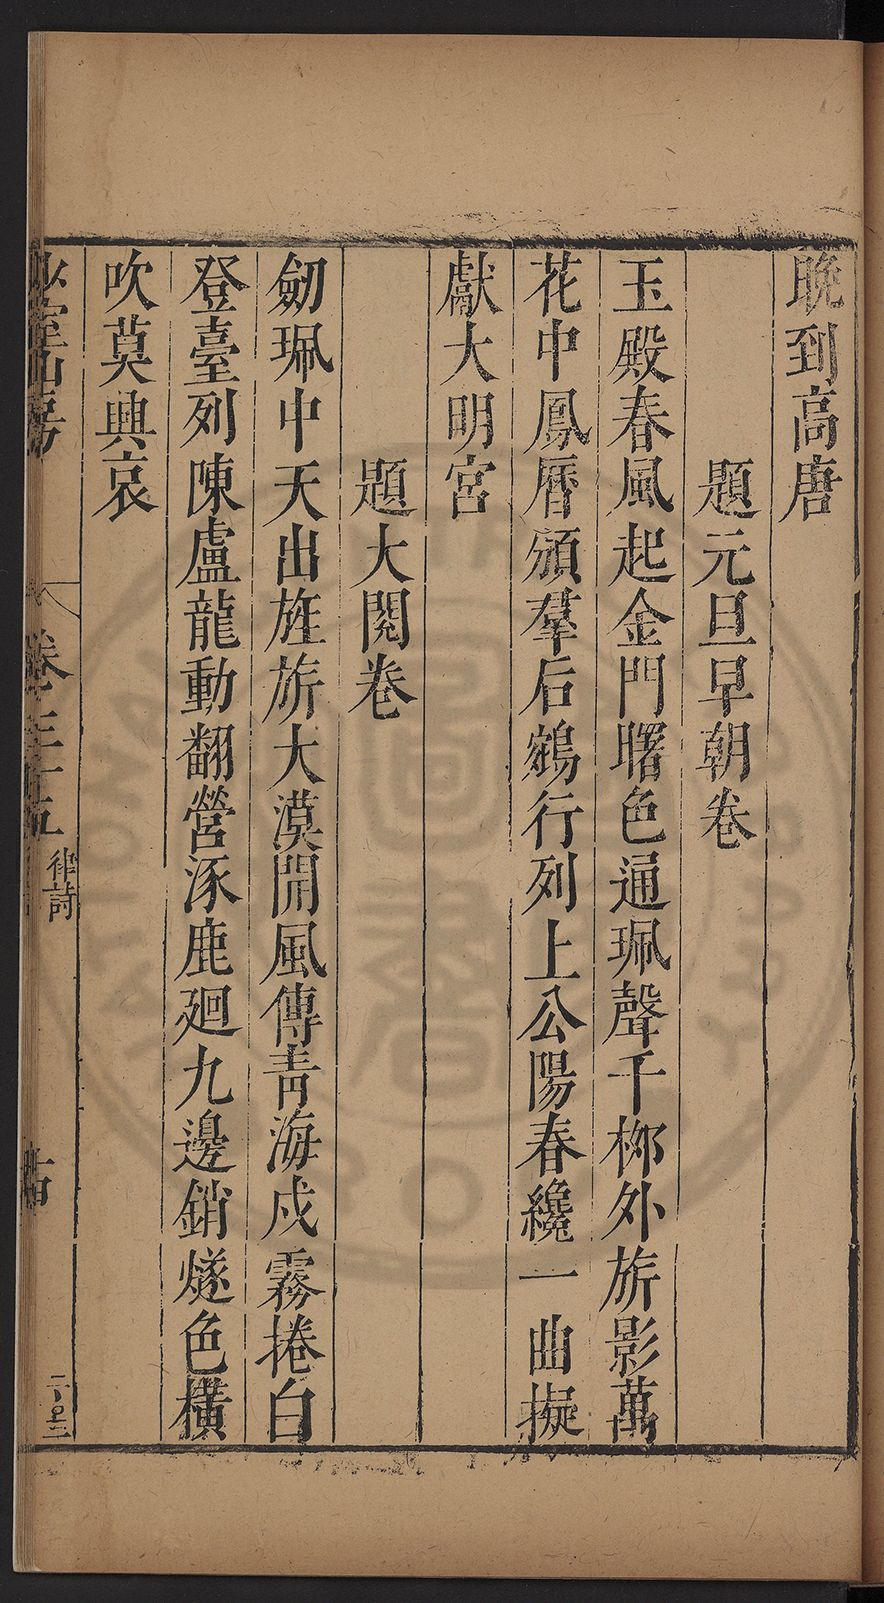 晚到高唐
題元旦早朝卷
玉殿春風起金門曙色通珮聲千柳外旂影萬
花中鳳曆頒羣后鵷行列上公陽春纔一曲擬
獻大明宮
題大閱卷
劒珮中天出旌旂大漠開風傳青海戍霧捲白
登臺列陳盧龍動翻營涿鹿廻九邊銷燧色橫
吹莫興哀
少室山房
卷三十五
律詩